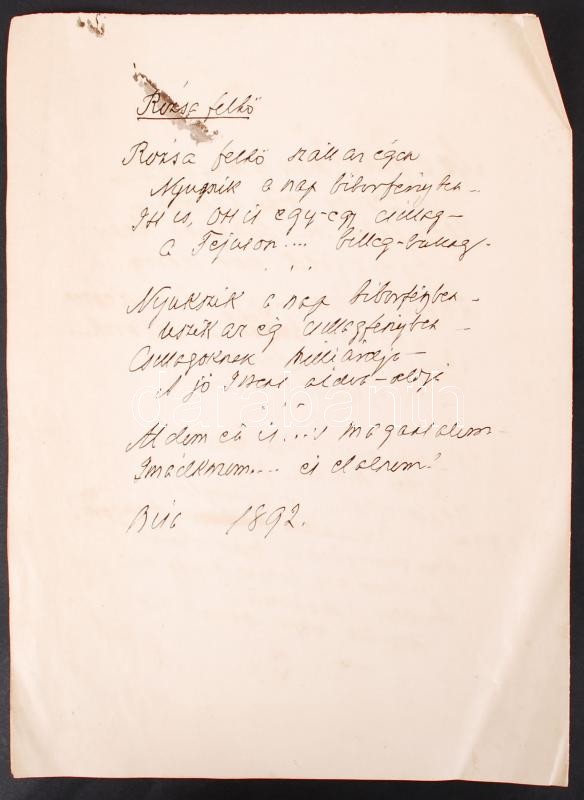 Rózsa felhő
Rózsa felhő száll az égen
Nyugszik a nap biborfényben –
Itt is, ott is egy-egy csillag –
a Tejuton.... billeg-ballag.
. . .
Nyukszik a nap biborfényben –
uszik az ég csillagfényben –
Csillagoknak milliárdja –
A jó Isten áldva-áldja
. . .
Áldom én is....s
Imádkozom.... és
1892.
darabanth